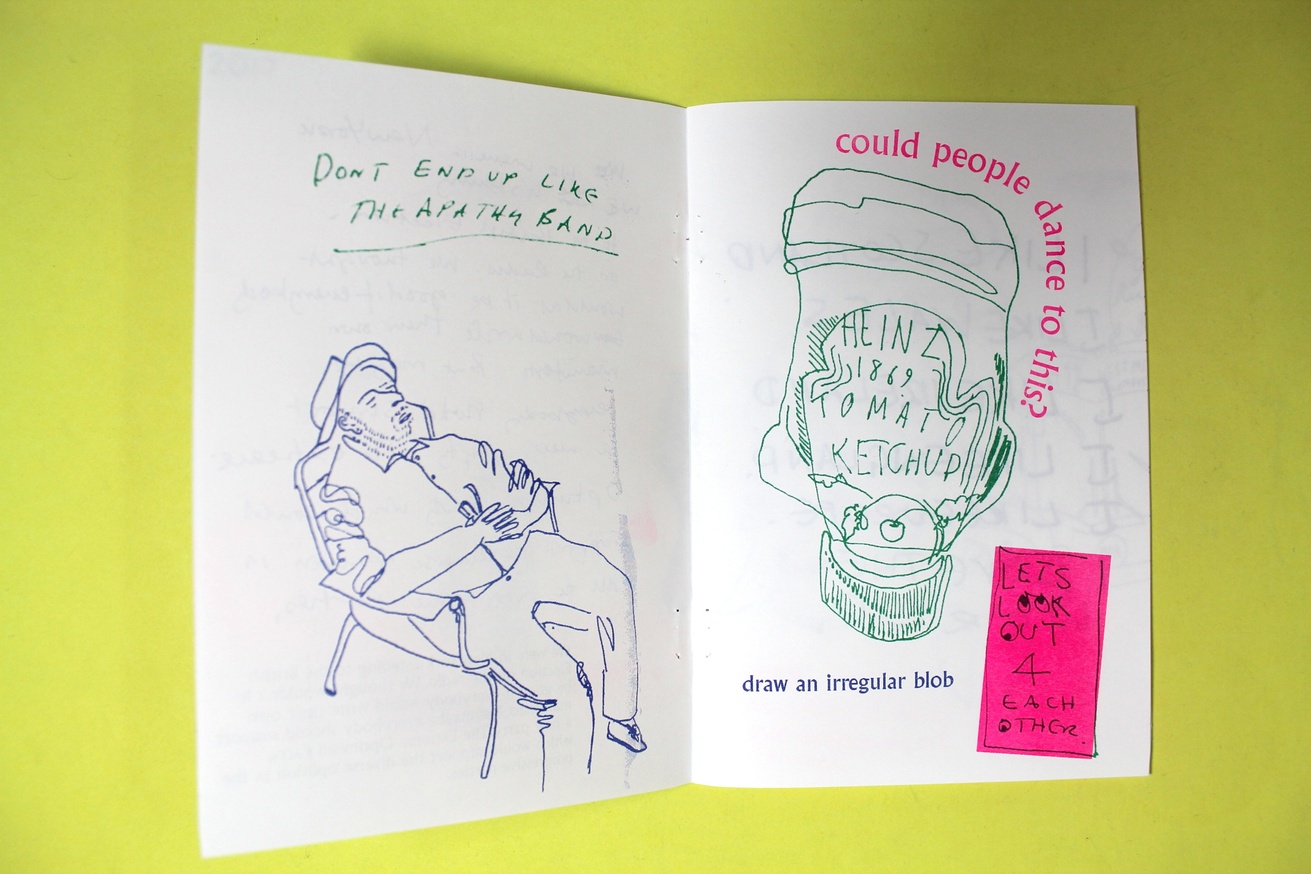 DONT END UP LIKE
THE APATHY BAND
could people dance to this?
HEINZ
1869
TOMATO
KETCHUP
draw an irregular blob
LETS
LOOK
OUT
4
EACH
OTHER.